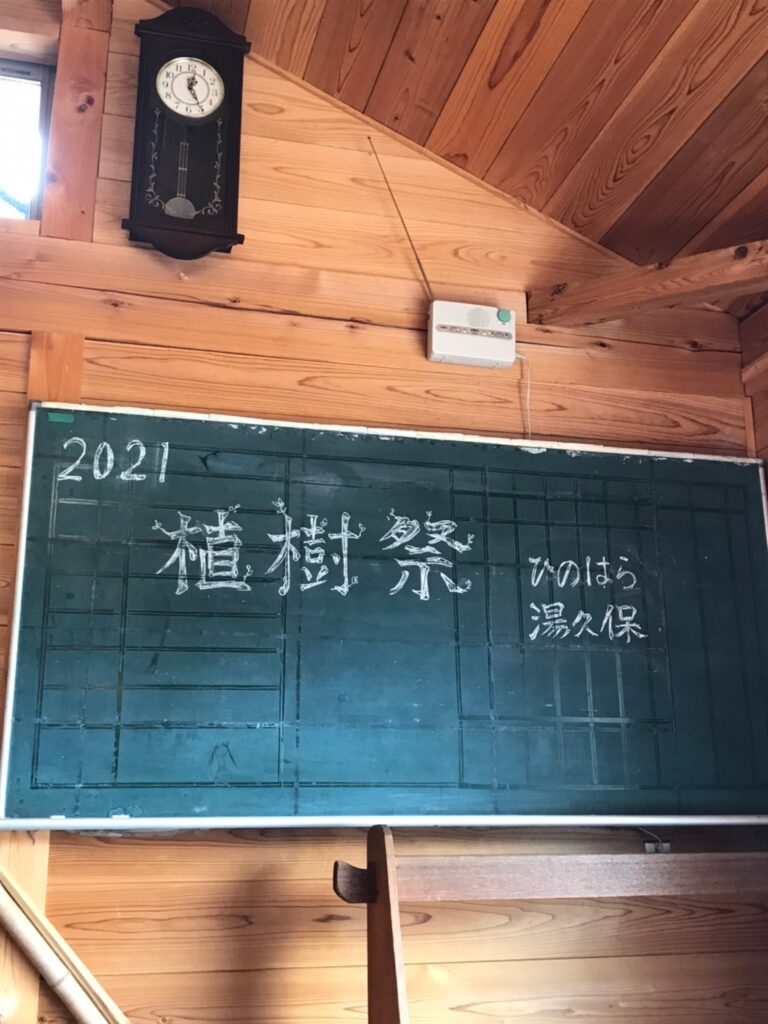 2021
植樹祭
ひのはら
湯久保